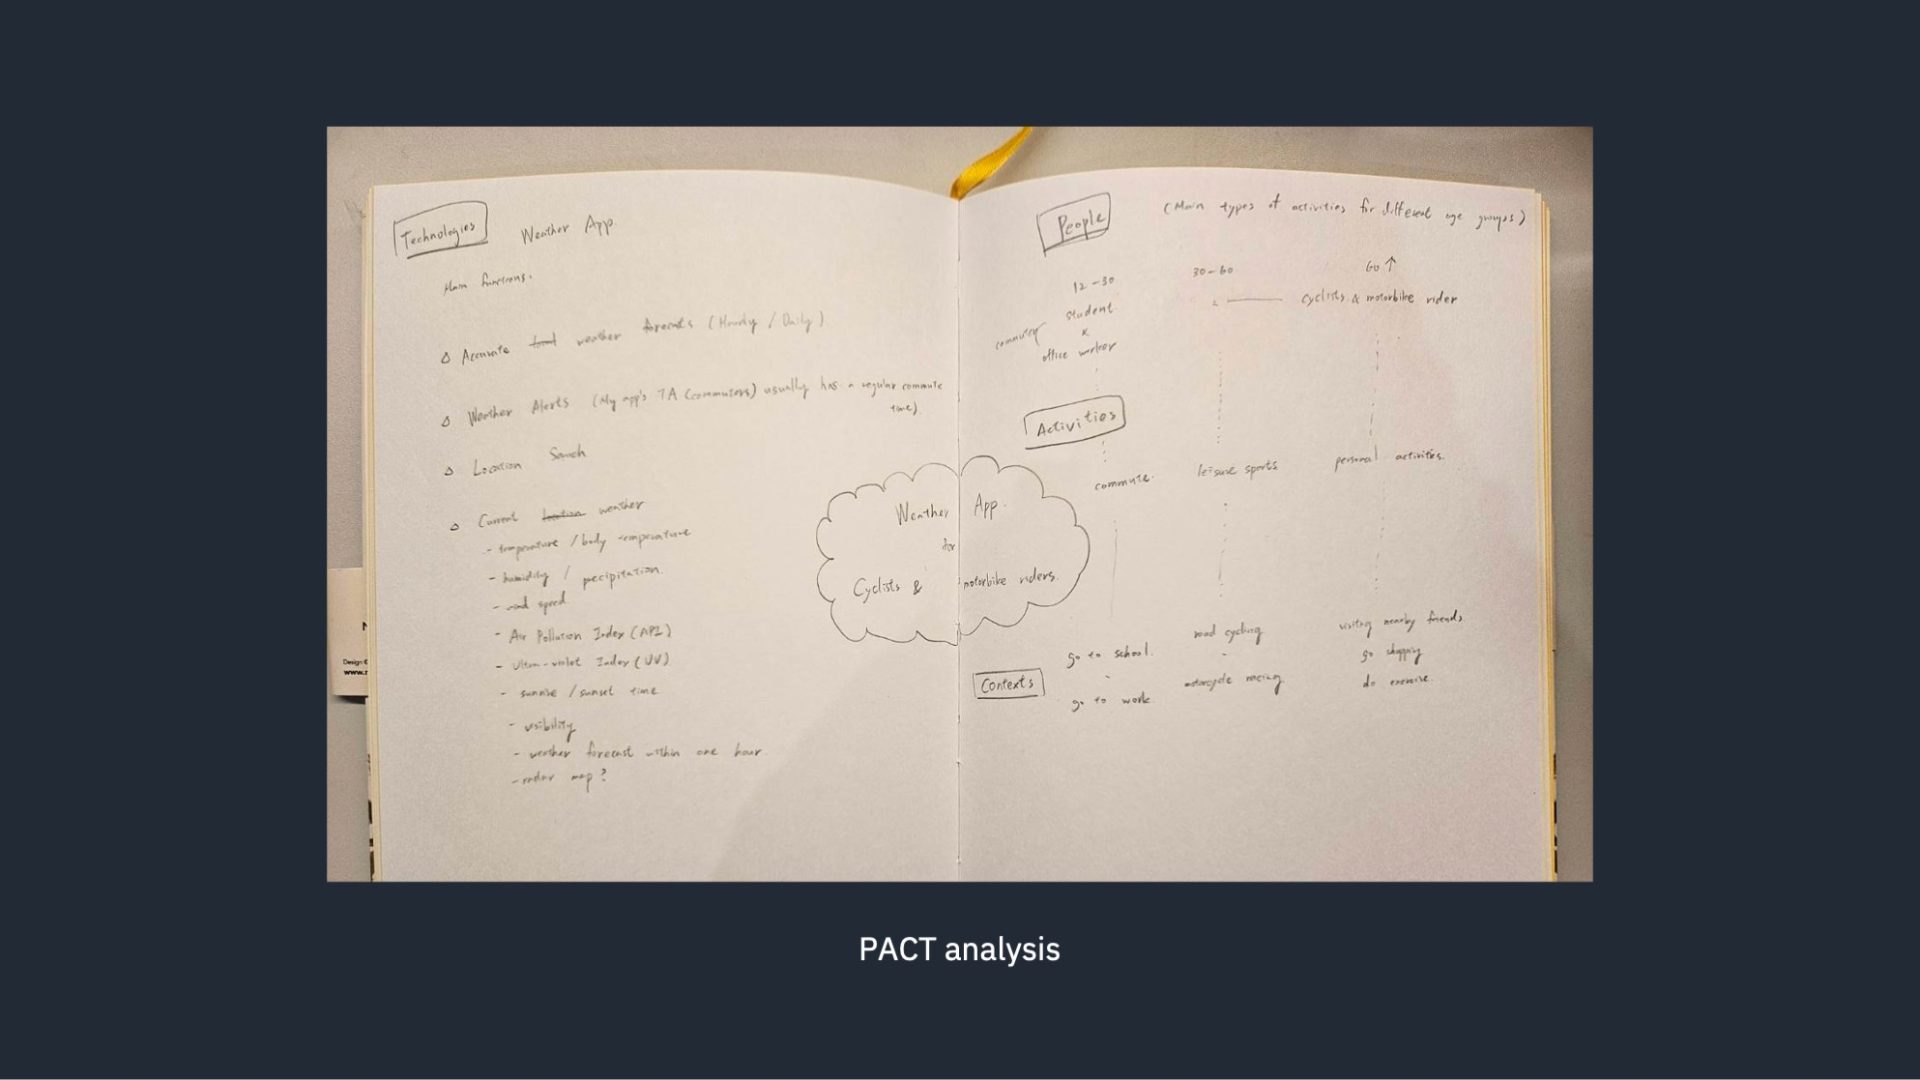 Technologies
Weather App.
Main functions.
△ Accurate weather forecasts (Hourly / Daily)
△ Weather Alerts (My app's TA (commuters) usually has a regular commute
time).
△ Location Search
△ Current location weather
- temperature / body temperature
- humidity / precipitation
- wind speed
- Air Pollution Index (API)
- Ultra-violet Index (UV)
- sunrise / sunset time
- visibility
- weather forecast within one hour.
- radar map?
Weather App.
for
Cyclists & motorbike riders.
People
(Main types of activities for different age groups)
12-30
30-60
60↑
student
&
office worker
cyclists & motorbike rider
Activities
commute.
leisure sports
personal activities.
Contexts
go to school.
go to work.
road cycling
motorcycle racing
visiting nearby friends
go shopping
do exercise.
Design
www.
PACT analysis